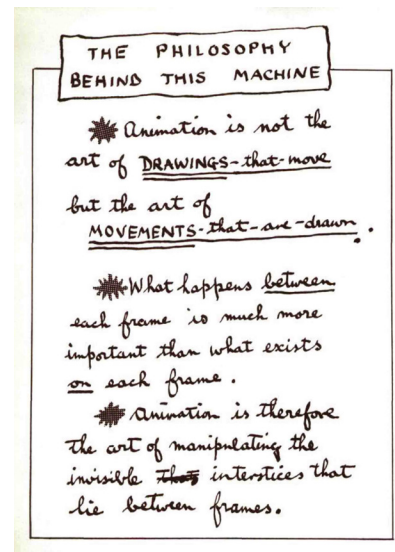 THE PHILOSOPHY
BEHIND THIS MACHINE
Animation is not the
art of DRAWINGS-that-move
but the art of
MOVEMENTS-that-are-drawn.
What happens between
each frame is much more
important than what exists
on each frame.
Animation is therefore
the art of manipulating the
invisible interstices that
lie between frames.